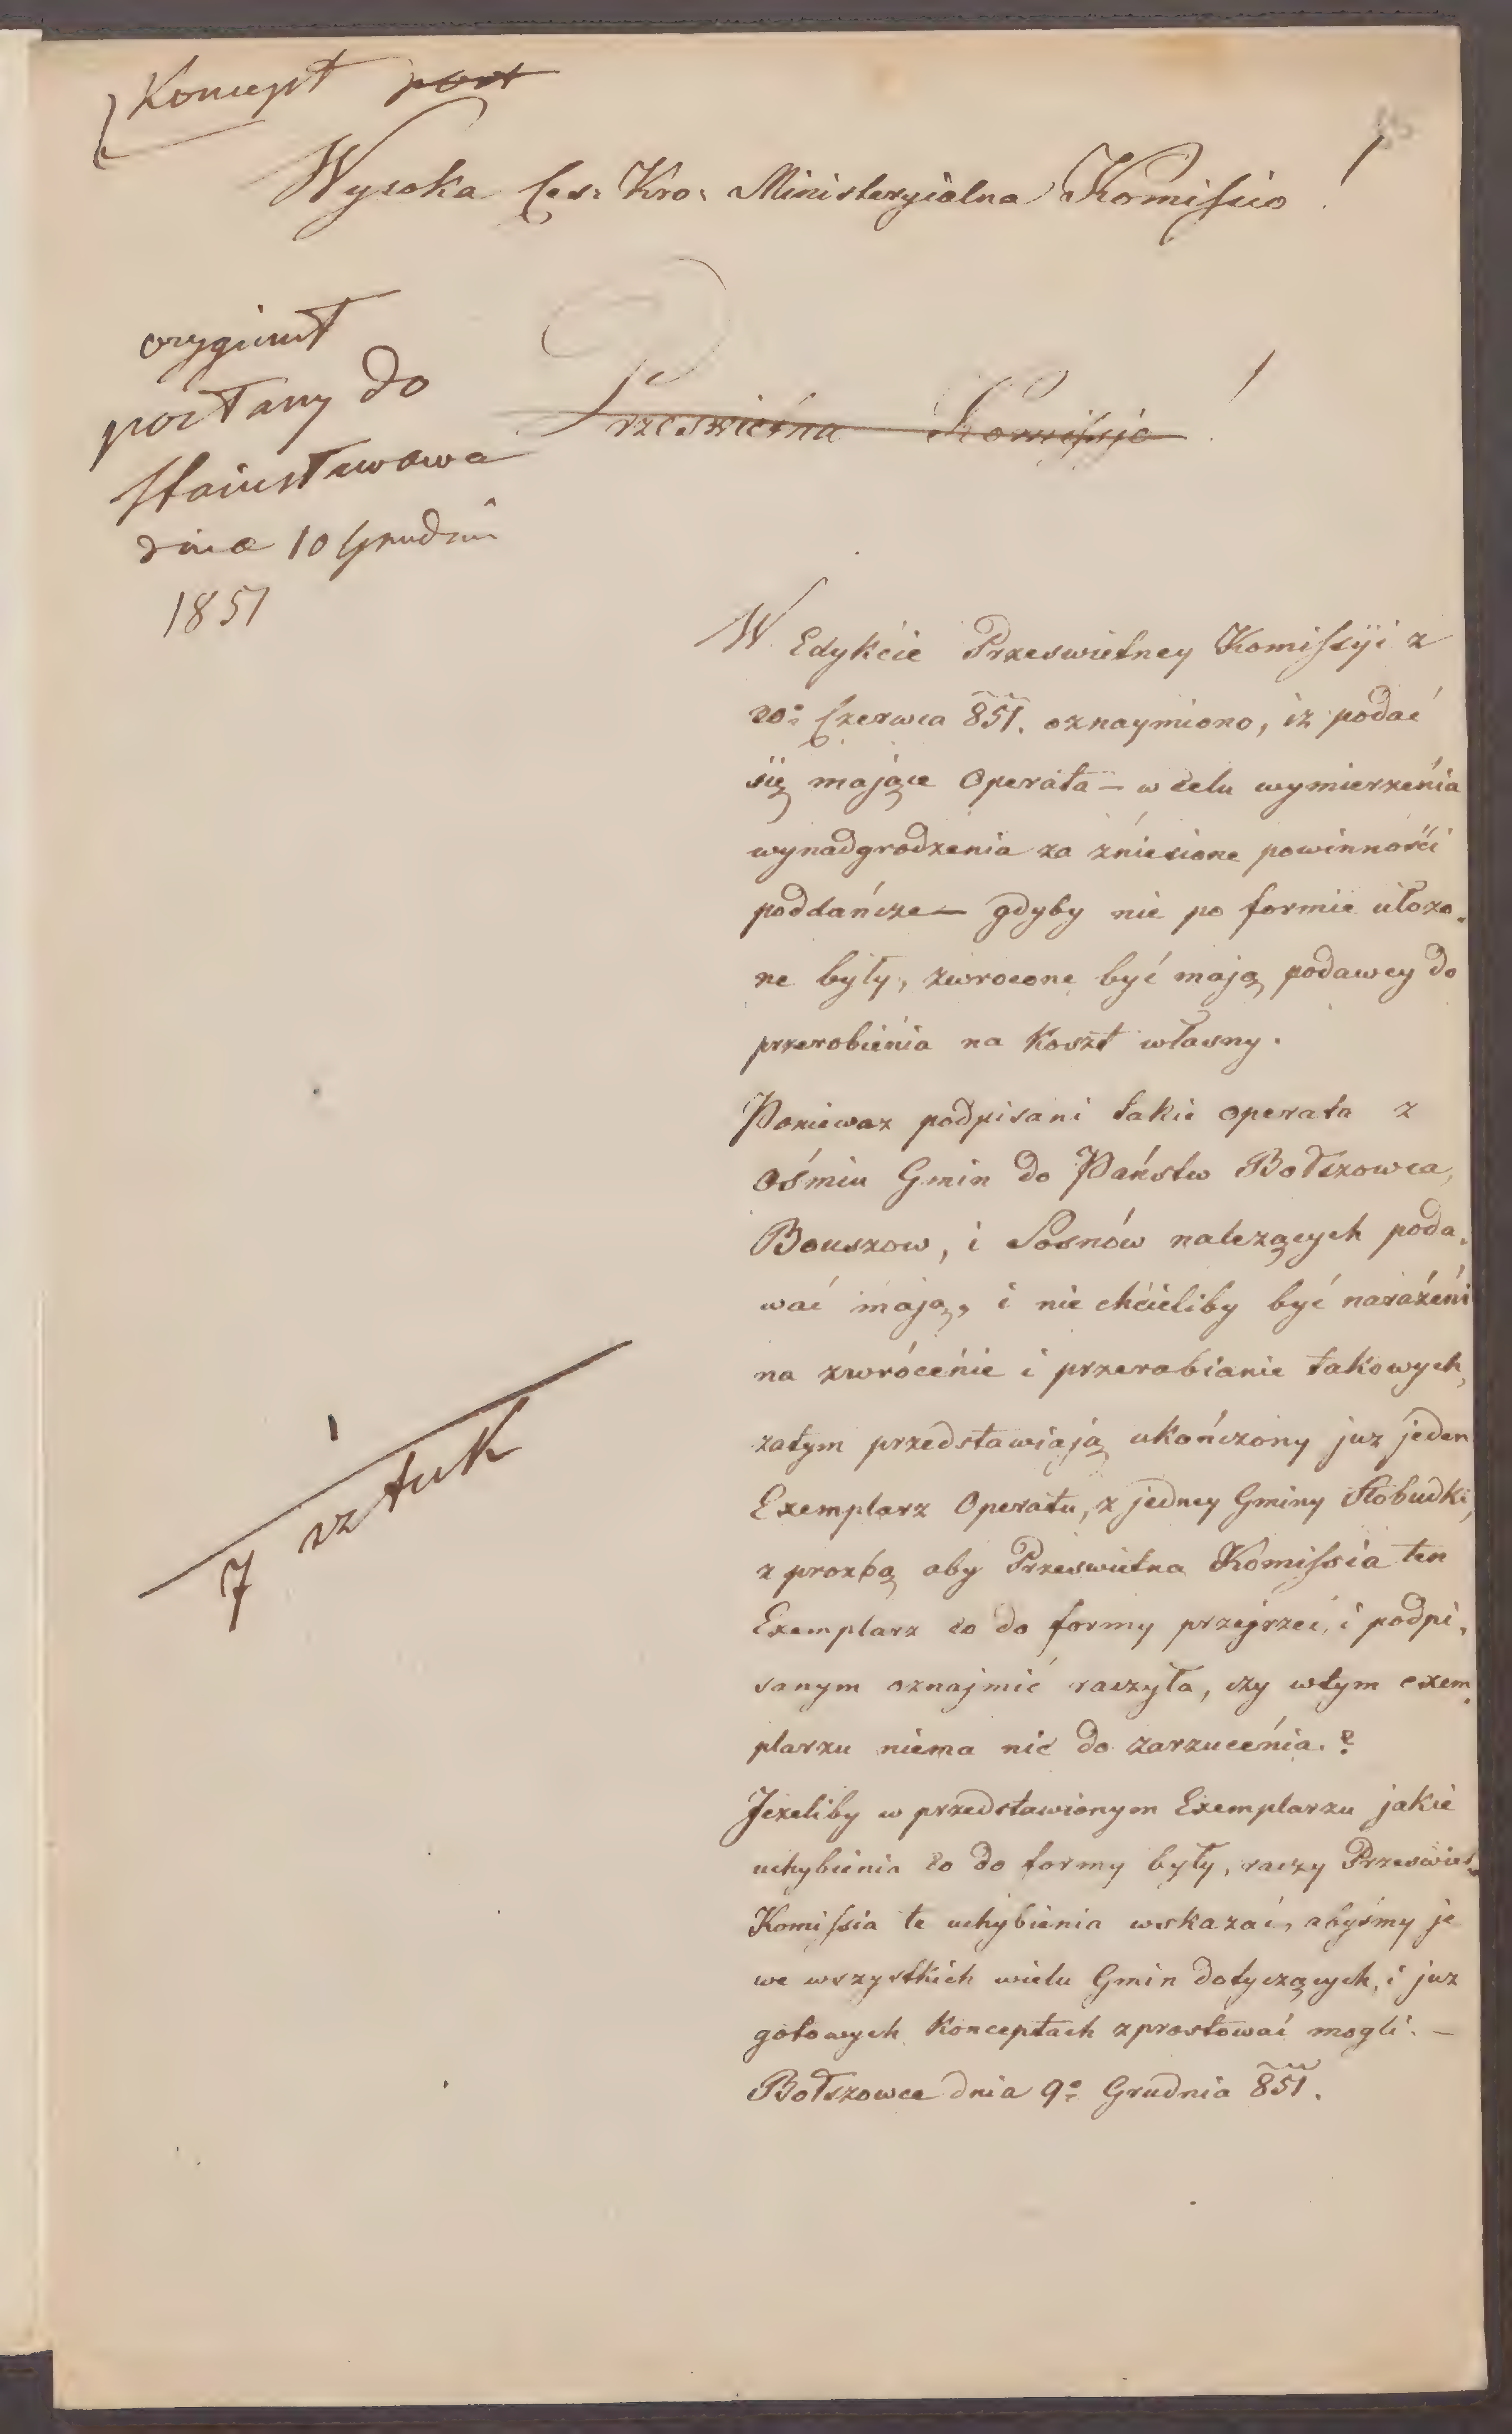 Koncept post
Wysoka Ces: Kro: Ministeryialna Komissio!
oryginał
posłany do
Stanisławowa
dnia 10 Grudnia
1851
Prześwietna Komissjo!
W Edykcie Przeswietney Komissyi z
20º Czerwca 851. oznaymiono, iż podać
się mające Operata – w celu wymierzenia
wynadgrodzenia za zniesione powinności
poddańcze – gdyby nie po formie ułożo-
ne były, zwrocone być mają podawcy do
przerobienia na koszt własny.
Poniewaz podpisani takie operata z
ośmiu Gmin do Państw Bołszowca,
Bouszow, i Sosnów nalezących poda-
wać mają, i nie chcieliby być narażeni
na zwrócenie i przerabianie takowych,
zatym przedstawiają ukończony juz jeden
Exemplarz Operatu, z jedney Gminy Słobudki,
z prozbą aby Przeswietna Komissia ten
Exemplarz co do formy przejrzeć, i podpi-
sanym oznajmić raczyła, czy wtym exem-
plarzu niema nic do zarzucenia.?
Jezeliby w przedstawionym Exemplarzu jakie
uchybienia co do formy były, raczy Przeswiet
Komissia te uchybienia wskazać, abyśmy je
we wszystkich wielu Gmin dotyczących, i juz
gotowych Konceptach zprostować mogli. –
Bołszowce dnia 9º Grudnia 851.
7 sztuk